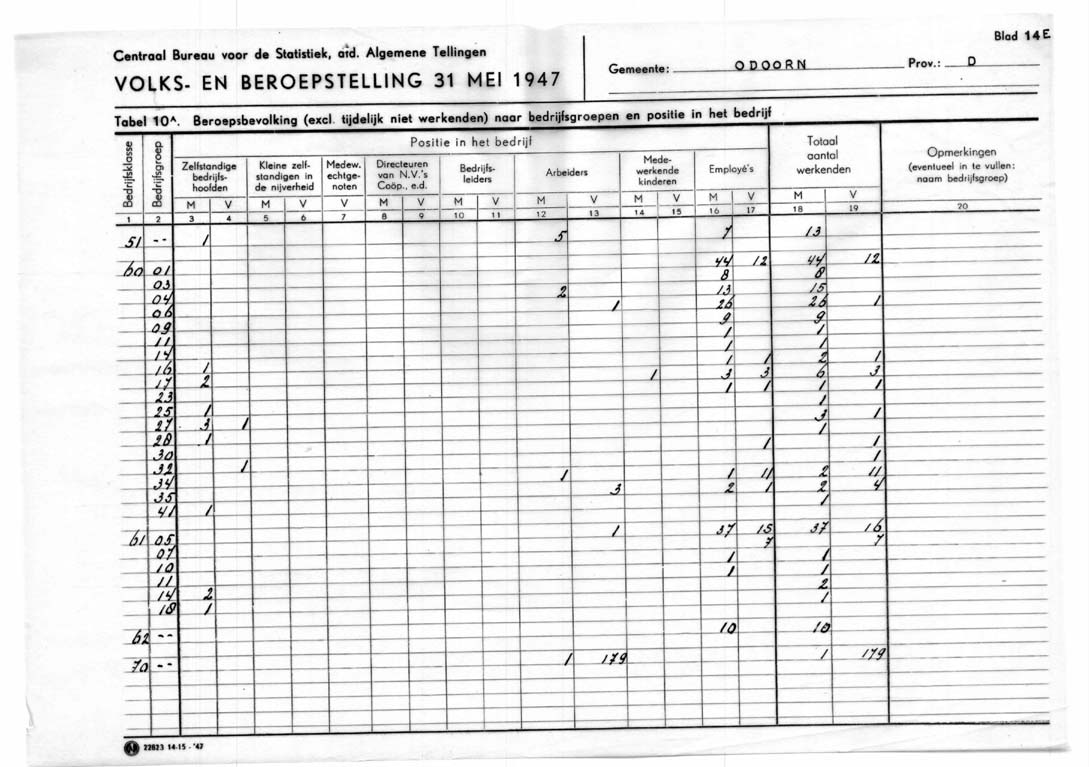 Blad 14E
Centraal Bureau voor de Statistiek, afd. Algemene Tellingen
VOLKS- EN BEROEPSTELLING 31 MEI 1947
Gemeente: ODOORN Prov.: D
Tabel 10A. Beroepsbevolking (excl. tijdelijk niet werkenden) naar bedrijfsgroepen en positie in het bedrijf
Bedrijfsklasse
Bedrijfsgroep
Positie in het bedrijf
Zelfstandige
bedrijfs-
hoofden
Kleine zelf-
standigen in
de nijverheid
Medew.
echtge-
noten
Directeuren
van N.V.'s
Coöp., e.d.
Bedrijfs-
leiders
Arbeiders
Mede-
werkende
kinderen
Employé's
Totaal
aantal
werkenden
Opmerkingen
(eventueel in te vullen:
naam bedrijfsgroep)
M V M V V M V M V M V M V M V M V
1 2 3 4 5 6 7 8 9 10 11 12 13 14 15 16 17 18 19 20
51 -- 1 5 7 13
60 01 44 12 44 12
03 8 8
04 2 13 15
06 1 26 26 1
09 9 9
11 1 1
14 1 1
16 1 1 1 2 1
17 2 1 3 3 6 3
23 1 1 1 1
25 1 1
27 3 1 3 1
28 1 1
30 1 1
32 1 1
34 1 1 11 2 11
35 3 2 1 2 4
41 1 1
61 05 1 37 15 37 16
07 7 7
10 1 1
11 1 1
14 2 2
18 1 1
62 -- 10 10
70 -- 1 179 1 179
22823 14-15 - '47